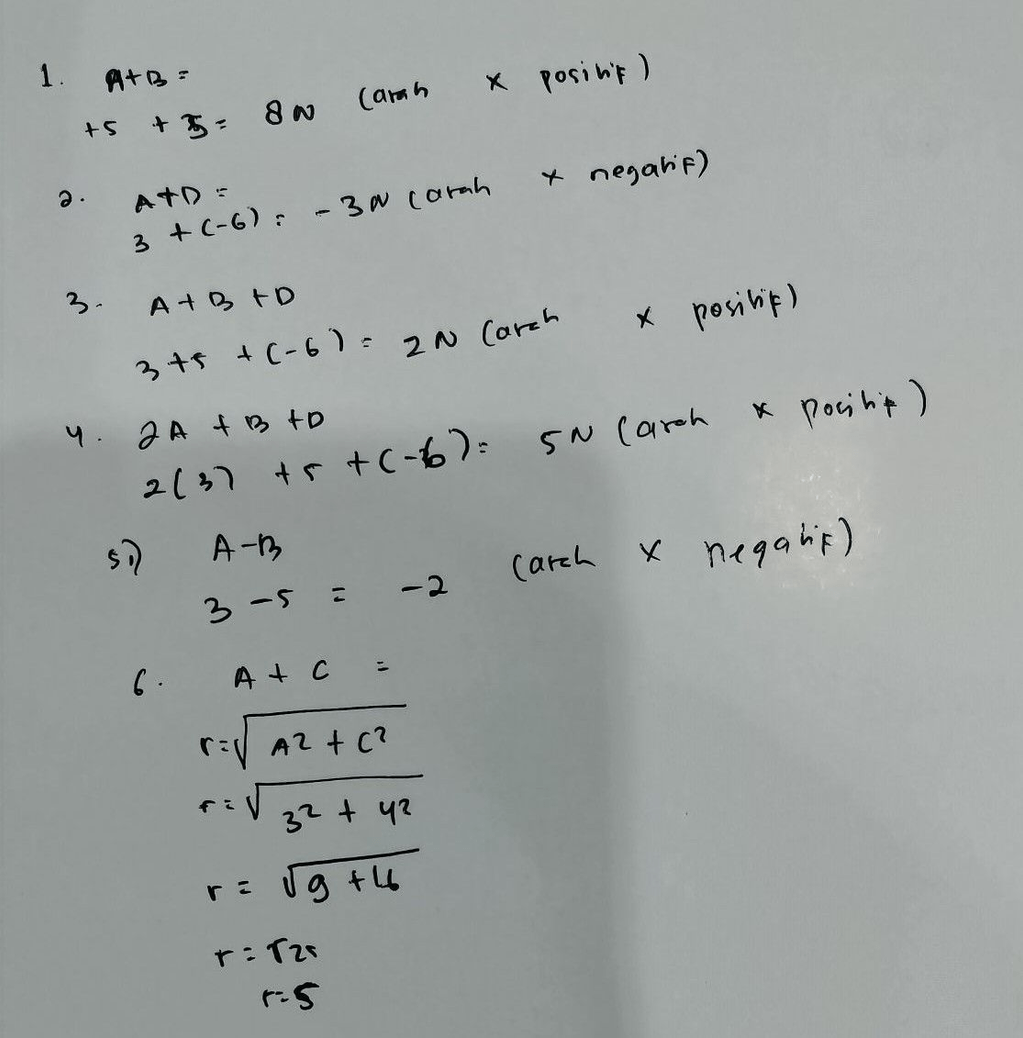 1. A+B =
+5 + 3 = 8 N (arah x positif)
2. A+D =
3 + (-6) = -3N (arah x negatif)
3. A + B + D
3 + 5 + (-6) = 2 N (arah x positif)
4. 2A + B + D
2(3) + 5 + (-6) = 5 N (arah x positif)
5.) A-B
3 - 5 = -2 (arah x negatif)
6. A + C =
r = √A² + C²
r = √3² + 4²
r = √9 + 16
r = √25
r = 5